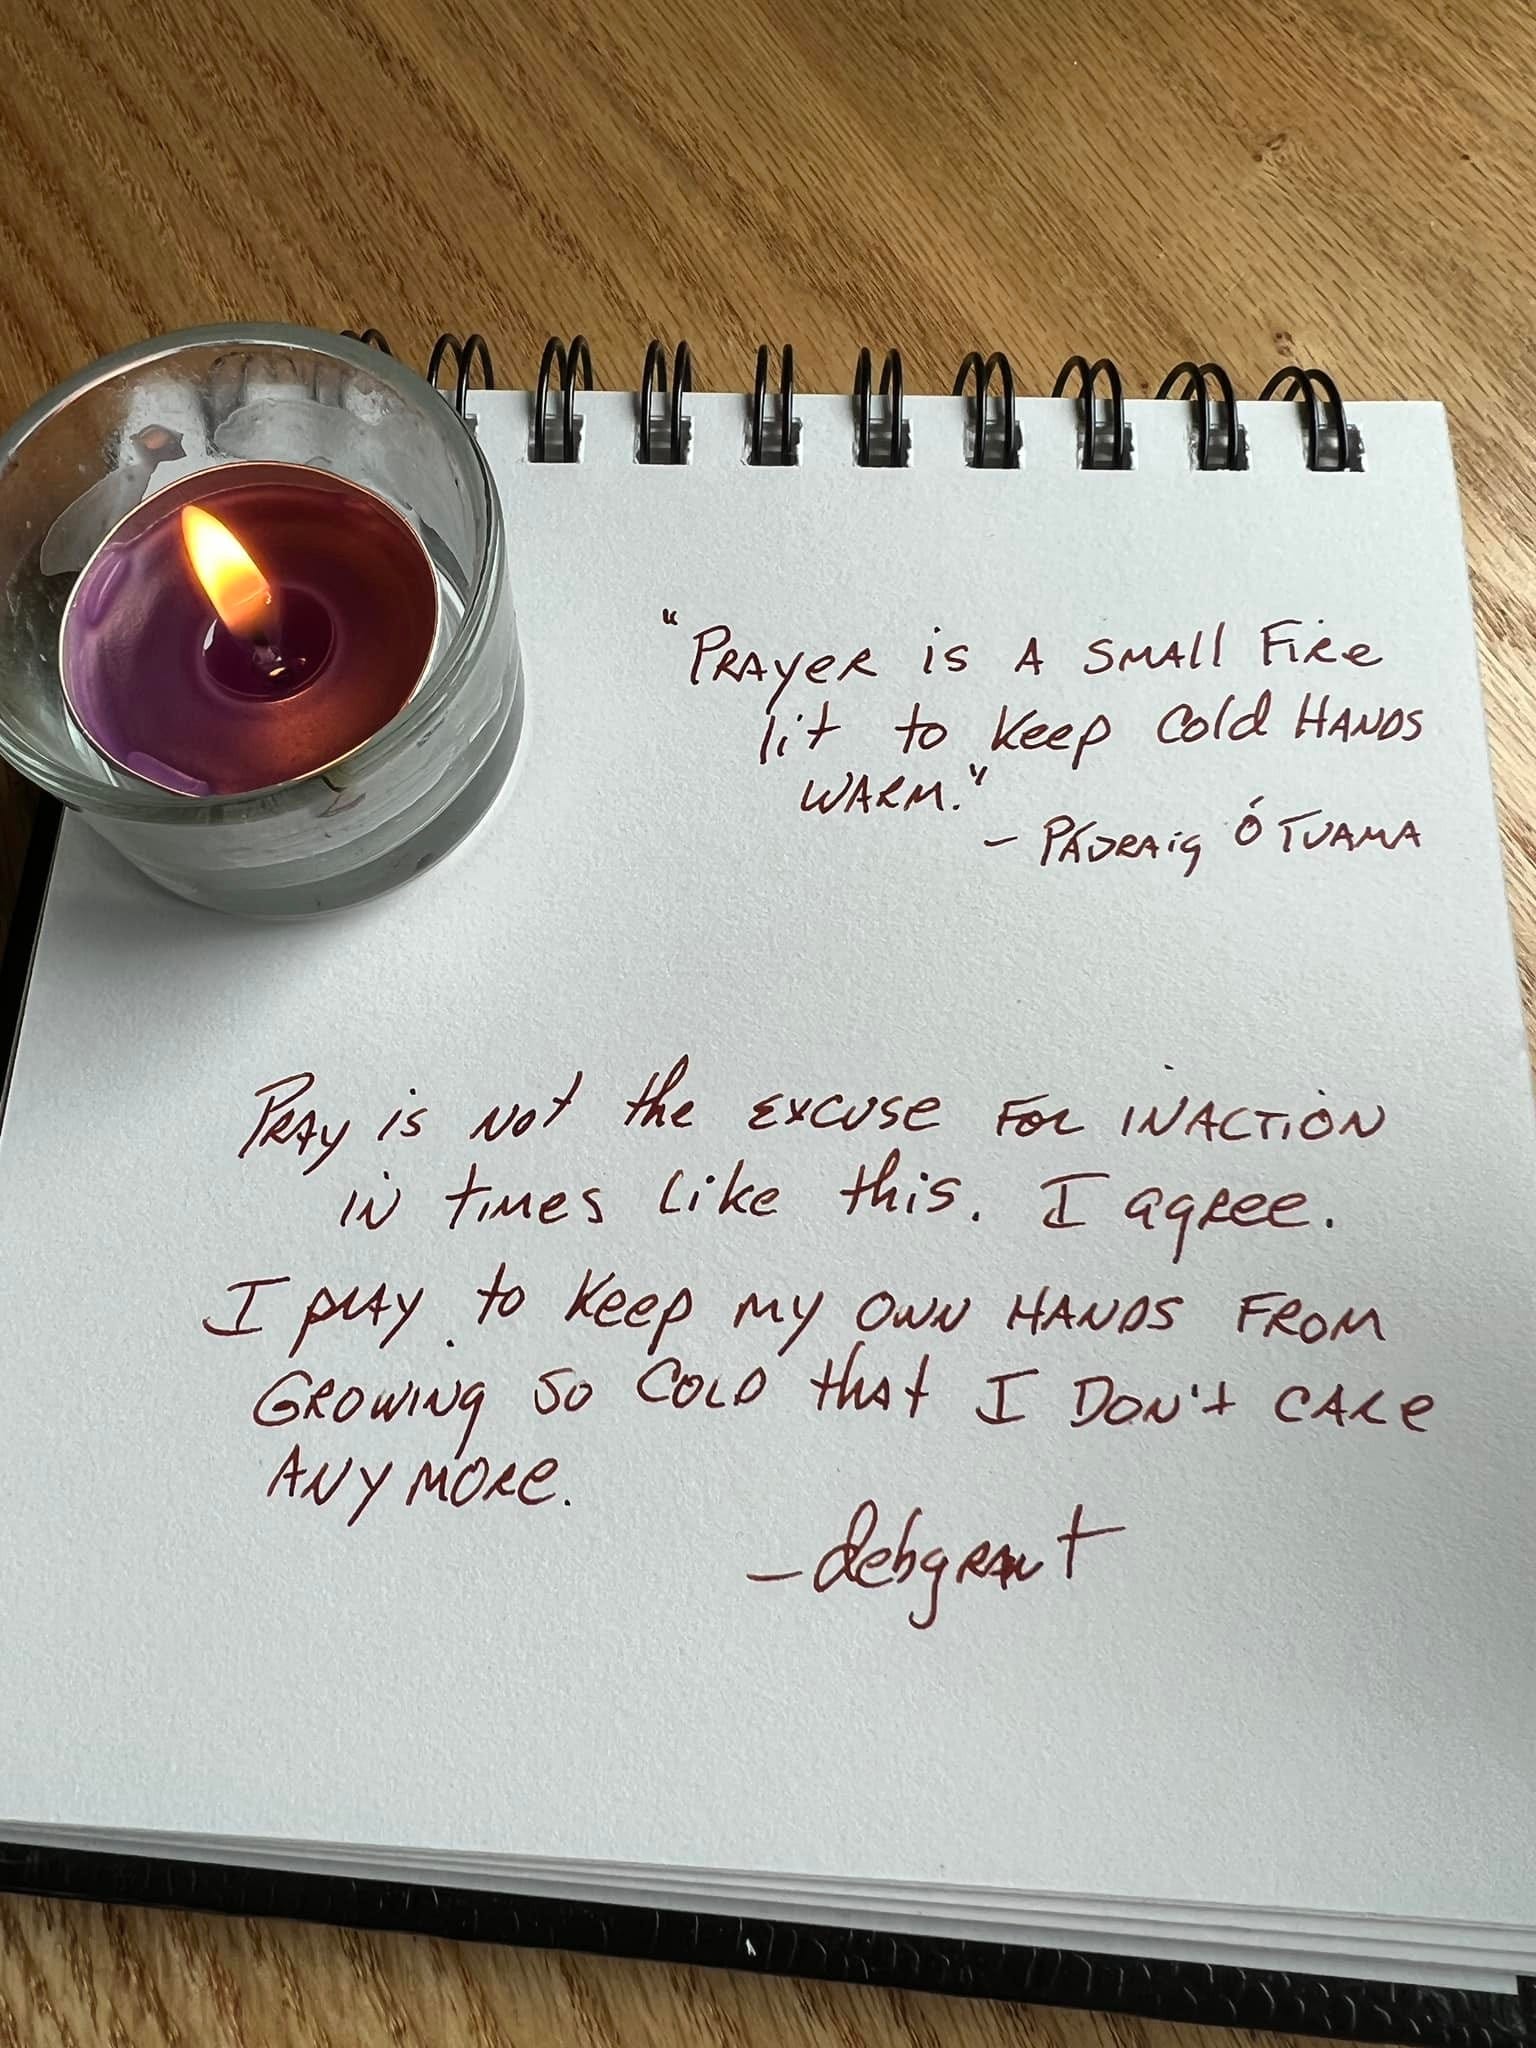 "Prayer is a small fire
lit to keep cold hands
warm."
- Pádraig Ó Tuama
Pray is not the excuse for inaction
in times like this. I agree.
I pray to keep my own hands from
growing so cold that I don't care
anymore.
- debgrant